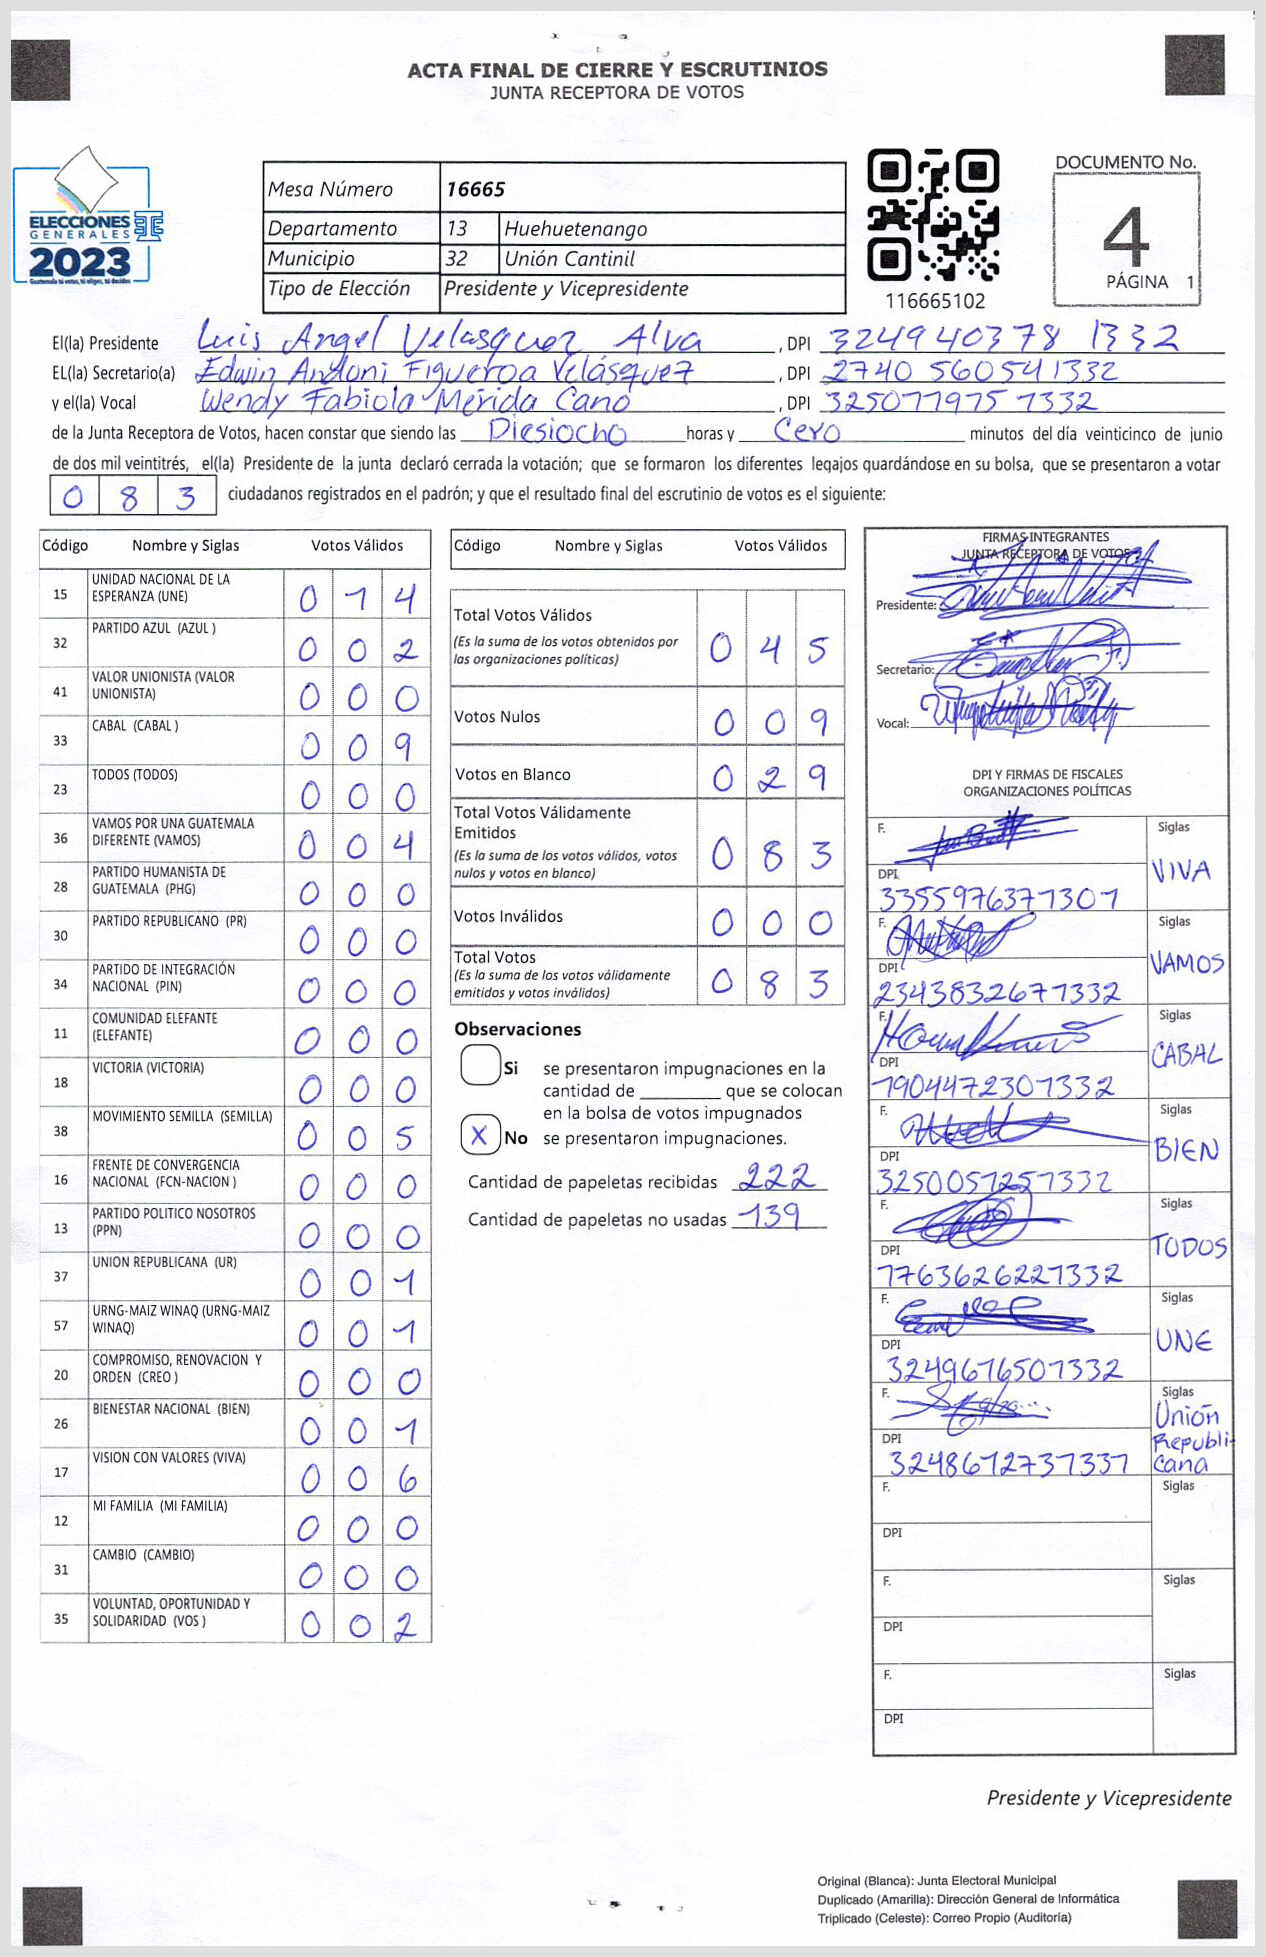 ACTA FINAL DE CIERRE Y ESCRUTINIOS
JUNTA RECEPTORA DE VOTOS
ELECCIONES
GENERALES
2023
Guatemala tú votas, tú eliges, tú decides
Mesa Número 16665
Departamento 13 Huehuetenango
Municipio 32 Unión Cantinil
Tipo de Elección Presidente y Vicepresidente
116665102
DOCUMENTO No.
4
PÁGINA 1
El(la) Presidente Luis Angel Velasquez Alva, DPI 324940378 1332
EL(la) Secretario(a) Edwin Antoni Figueroa Velásquez, DPI 2740 560541332
y el(la) Vocal Wendy Fabiola Mérida Cano, DPI 325077975 1332
de la Junta Receptora de Votos, hacen constar que siendo las Diesiocho horas y Cero minutos del día veinticinco de junio
de dos mil veintitrés, el(la) Presidente de la junta declaró cerrada la votación; que se formaron los diferentes legajos guardándose en su bolsa, que se presentaron a votar
0 8 3 ciudadanos registrados en el padrón; y que el resultado final del escrutinio de votos es el siguiente:
Código Nombre y Siglas Votos Válidos
15 UNIDAD NACIONAL DE LA ESPERANZA (UNE) 0 1 4
32 PARTIDO AZUL (AZUL ) 0 0 2
41 VALOR UNIONISTA (VALOR UNIONISTA) 0 0 0
33 CABAL (CABAL ) 0 0 9
23 TODOS (TODOS) 0 0 0
36 VAMOS POR UNA GUATEMALA DIFERENTE (VAMOS) 0 0 4
28 PARTIDO HUMANISTA DE GUATEMALA (PHG) 0 0 0
30 PARTIDO REPUBLICANO (PR) 0 0 0
34 PARTIDO DE INTEGRACIÓN NACIONAL (PIN) 0 0 0
11 COMUNIDAD ELEFANTE (ELEFANTE) 0 0 0
18 VICTORIA (VICTORIA) 0 0 0
38 MOVIMIENTO SEMILLA (SEMILLA) 0 0 5
16 FRENTE DE CONVERGENCIA NACIONAL (FCN-NACION ) 0 0 0
13 PARTIDO POLITICO NOSOTROS (PPN) 0 0 0
37 UNION REPUBLICANA (UR) 0 0 1
57 URNG-MAIZ WINAQ (URNG-MAIZ WINAQ) 0 0 1
20 COMPROMISO, RENOVACION Y ORDEN (CREO ) 0 0 0
26 BIENESTAR NACIONAL (BIEN) 0 0 1
17 VISION CON VALORES (VIVA) 0 0 6
12 MI FAMILIA (MI FAMILIA) 0 0 0
31 CAMBIO (CAMBIO) 0 0 0
35 VOLUNTAD, OPORTUNIDAD Y SOLIDARIDAD (VOS ) 0 0 2
Código Nombre y Siglas Votos Válidos
Total Votos Válidos
(Es la suma de los votos obtenidos por las organizaciones políticas) 0 4 5
Votos Nulos 0 0 9
Votos en Blanco 0 2 9
Total Votos Válidamente Emitidos
(Es la suma de los votos válidos, votos nulos y votos en blanco) 0 8 3
Votos Inválidos 0 0 0
Total Votos
(Es la suma de los votos válidamente emitidos y votos inválidos) 0 8 3
Observaciones
Si se presentaron impugnaciones en la
cantidad de ________ que se colocan
en la bolsa de votos impugnados
X No se presentaron impugnaciones.
Cantidad de papeletas recibidas 222
Cantidad de papeletas no usadas 139
FIRMAS INTEGRANTES
JUNTA RECEPTORA DE VOTOS
Presidente:
Secretario:
Vocal:
DPI Y FIRMAS DE FISCALES
ORGANIZACIONES POLÍTICAS
F. Siglas
VIVA
DPI
3355976371301
F. Siglas
VAMOS
DPI
2343832671332
F. Siglas
CABAL
DPI
1904472301332
F. Siglas
BIEN
DPI
3250051251332
F. Siglas
TODOS
DPI
1763626221332
F. Siglas
UNE
DPI
3249616501332
F. Siglas
Unión
Republi-
cana
DPI
3248612731331
F. Siglas
DPI
F. Siglas
DPI
F. Siglas
DPI
Presidente y Vicepresidente
Original (Blanca): Junta Electoral Municipal
Duplicado (Amarilla): Dirección General de Informática
Triplicado (Celeste): Correo Propio (Auditoría)